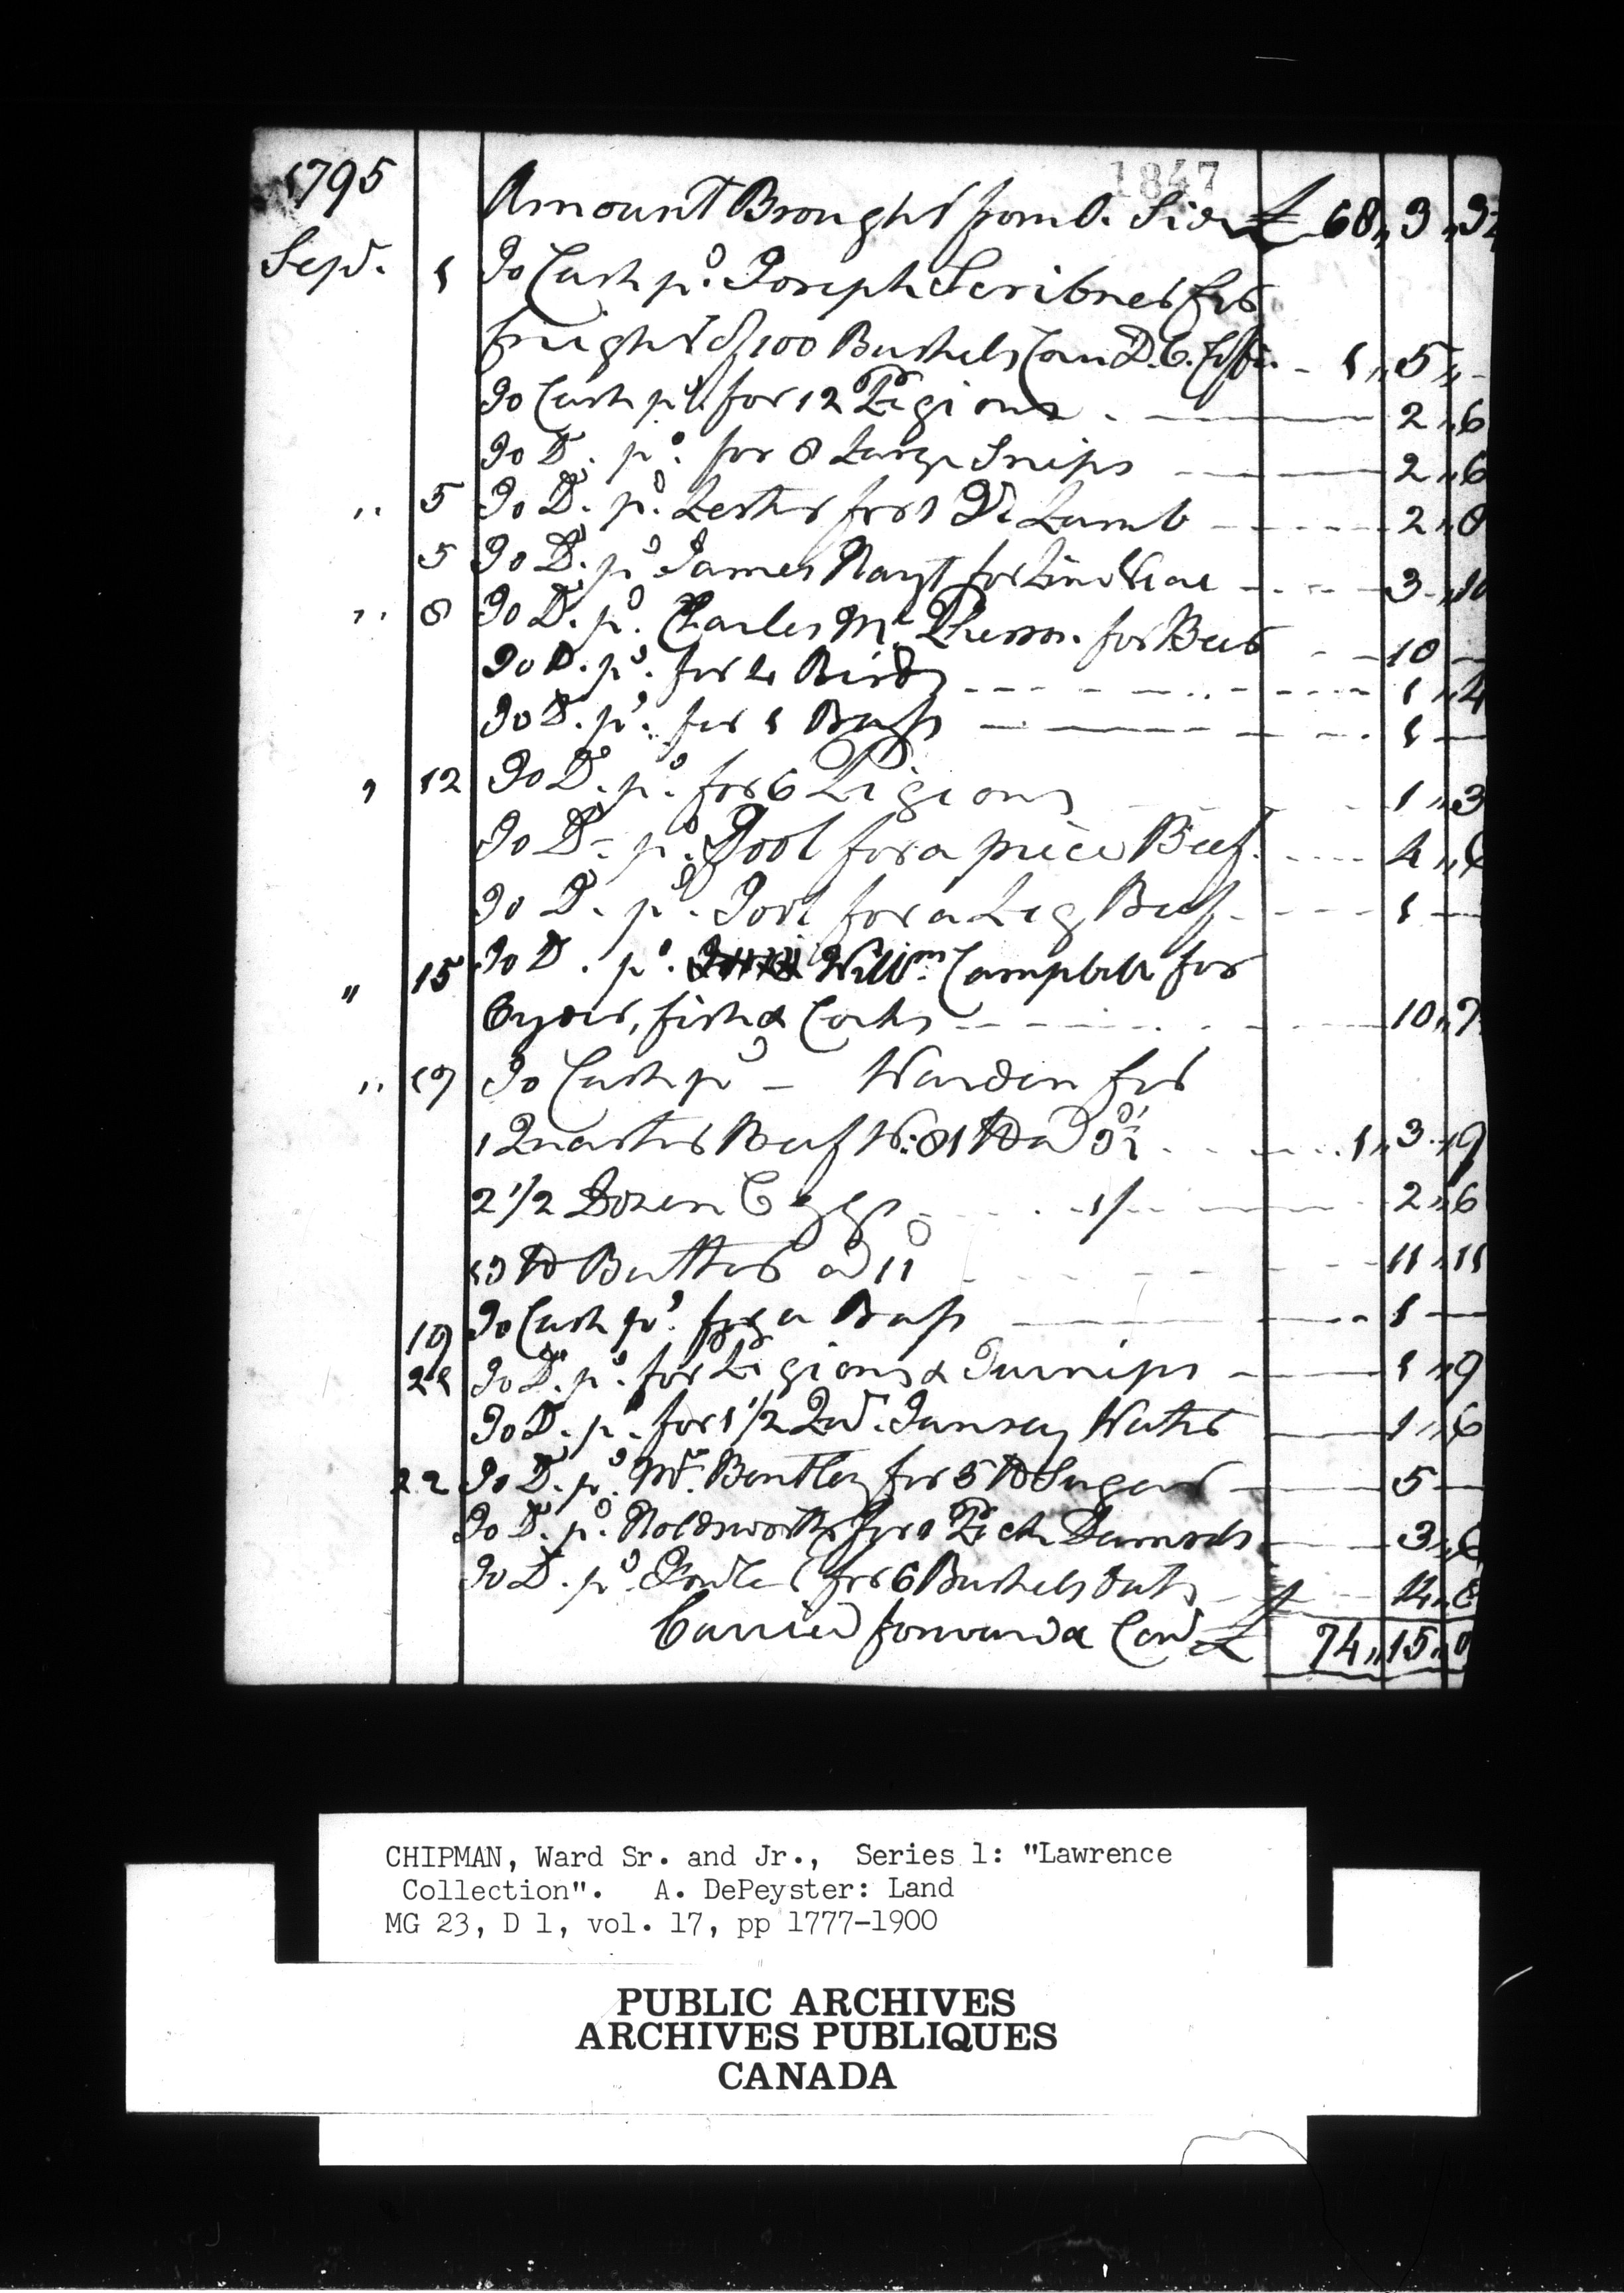 1847
1795 Amount Brought from O. Side £ 68 ,, 3 ,, 3½
Sepr. 1 To Cash pd. Joseph Scribner for
freight of 100 Bushels Coal 1 ,, 5 ,, -
To Cash pd. for 12 Pigions 2 ,, 6
To Do. pd. for 8 Large Snips 2 ,, 6
,, 5 To Do. pd. Lester for 1 Qr Lamb 2 ,, 8
5 To Do. pd James Hayt for 3 ,, 10
,, 8 To Do. pd. Charles Mc Pherson. for Beer 10 —
To Do. pd. for 4 Birds 1 ,, 4
To Do. pd. for 1 Bass 1 —
,, 12 To Do. pd. for 6 Pigions 1 ,, 3
To Do. pd. Tool for a piece Beef 4 ,, 6
To Do. pd. Tool for a Leg Beef 1 —
,, 15 To Do. pd. Willm. Campbell for
Cyder, fish & Corks 10 ,, 7
,, 19 To Cash pd — Warden for
1 Quarter Beef W. 81 lb ad 3½ 1 ,, 3 ,, 9
2 1/2 Dozen Eggs 1/ 2 ,, 6
13 lb Butter ad 11 11 ,, 11
19 To Cash pd. for a Bass 1 —
21 To Do. pd. for Pigions & Turnips 1 ,, 9
To Do. pd. for 1 1/2 Qd. Tansey Water 1 ,, 6
22 To Do. pd. Mr. Bentley for 5 lb Sugar 5 —
To Do. pd. Holdsworth for 1 Peck Damsols 3 ,, 6
To Do. pd. Fowler for 6 Bushels Oats 14 ,, 6
Carried forward & Cond £ 74 ,, 15 ,, 0
CHIPMAN, Ward Sr. and Jr., Series 1: "Lawrence
Collection". A. DePeyster: Land
MG 23, D 1, vol. 17, pp 1777-1900
PUBLIC ARCHIVES
ARCHIVES PUBLIQUES
CANADA